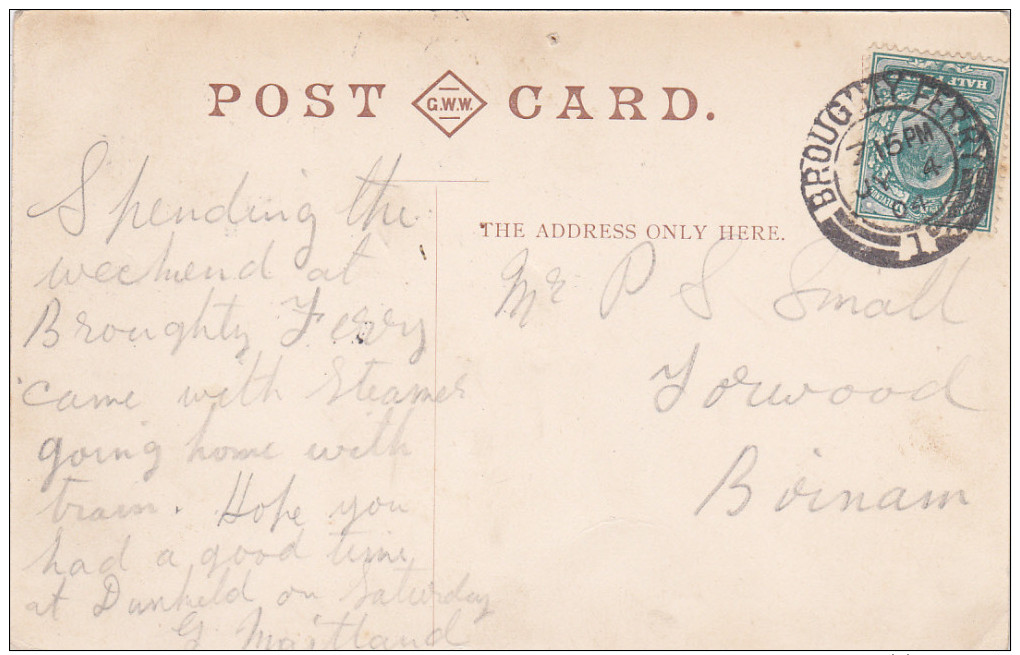 POST G.W.W. CARD.
HALF
BROUGHTY FERRY
7 15 PM
JY 4
04
1
THE ADDRESS ONLY HERE.
Spending the
weekend at
Broughty Ferry
came with Steamer
going home with
train. Hope you
had a good time
at Dunkeld on Saturday
G Maitland
Mr P S Small
Torwood
Birnam